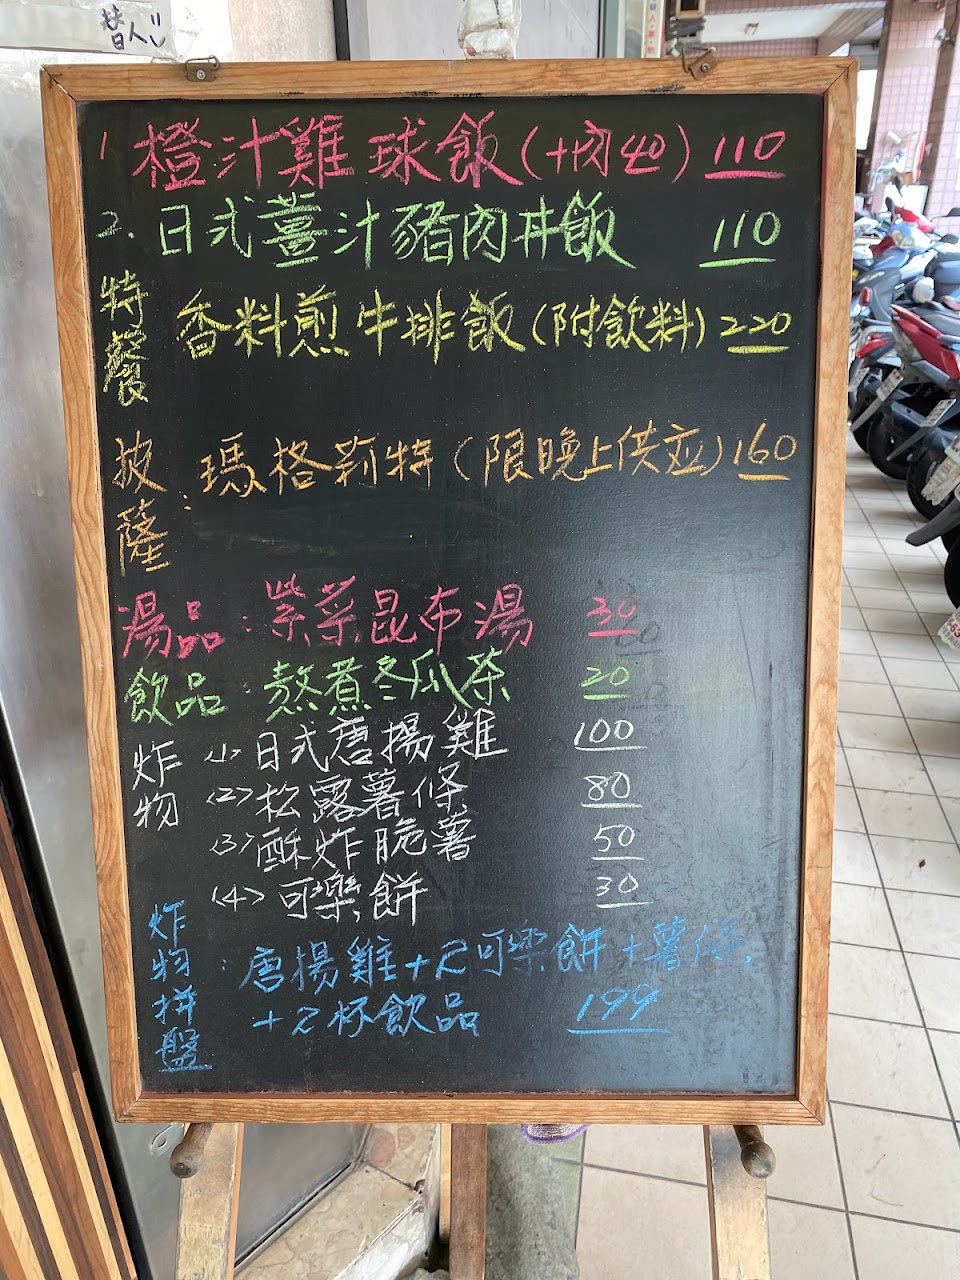 替人
1 橙汁雞球飯(+肉40) 110
2. 日式薑汁豬肉丼飯 110
特餐 香料煎牛排飯(附飲料) 220
披薩: 瑪格莉特(限晚上供应) 160
湯品: 紫菜昆布湯 30
飲品: 熬煮冬瓜茶 20
炸物 (1) 日式唐揚雞 100
(2) 松露薯條 80
(3) 酥炸脆薯 50
(4) 可樂餅 30
炸物拼盤: 唐揚雞+2可樂餅+薯條
+2杯飲品 199